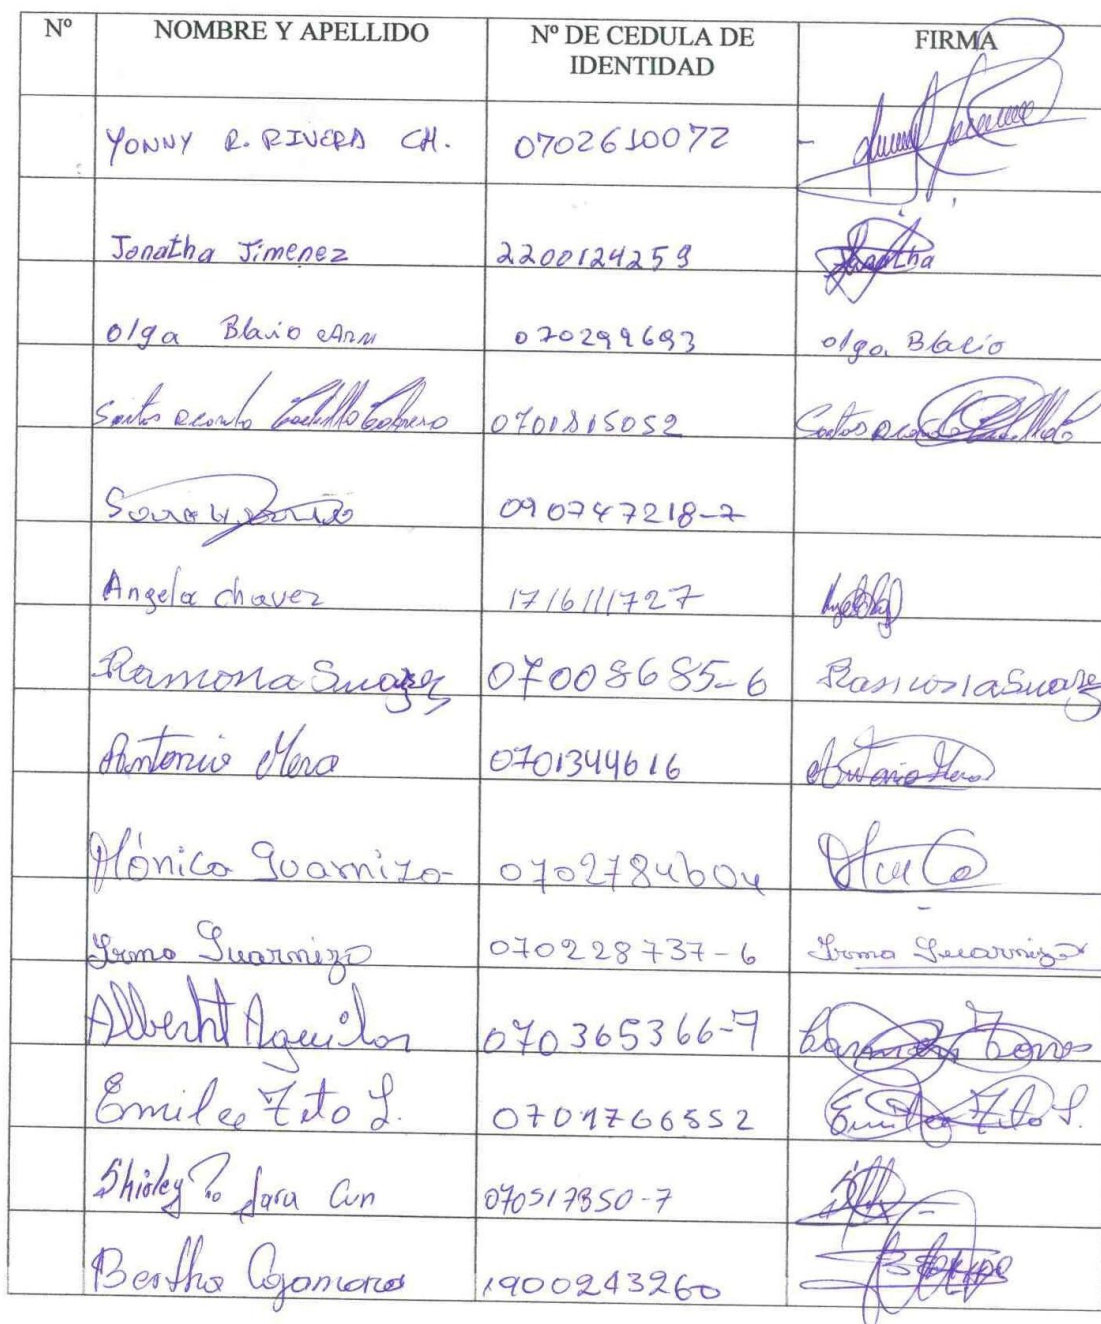 Nº NOMBRE Y APELLIDO Nº DE CEDULA DE IDENTIDAD FIRMA
YONNY R. RIVERA CH. 0702610072
Jonatha Jimenez 2200124259 Jonatha
olga Blacio 070299693 olga Blacio
Santos 0701815052 Santos
090747218-7
Angela chavez 1716111727
Ramona Suarez 07008685-6 Ramona Suarez
Antonio Mera 0701344616 Antonio Mera
Mónica Guarnizo 0702784604
Irma Guarnizo 070228737-6 Irma Guarnizo
Albert Aguilar 070365366-7 Carmen Torres
Emilee Tito L. 0701766552 Tito L.
Shirley Jara 070517350-7
Bertha Cajamarca 1900243260